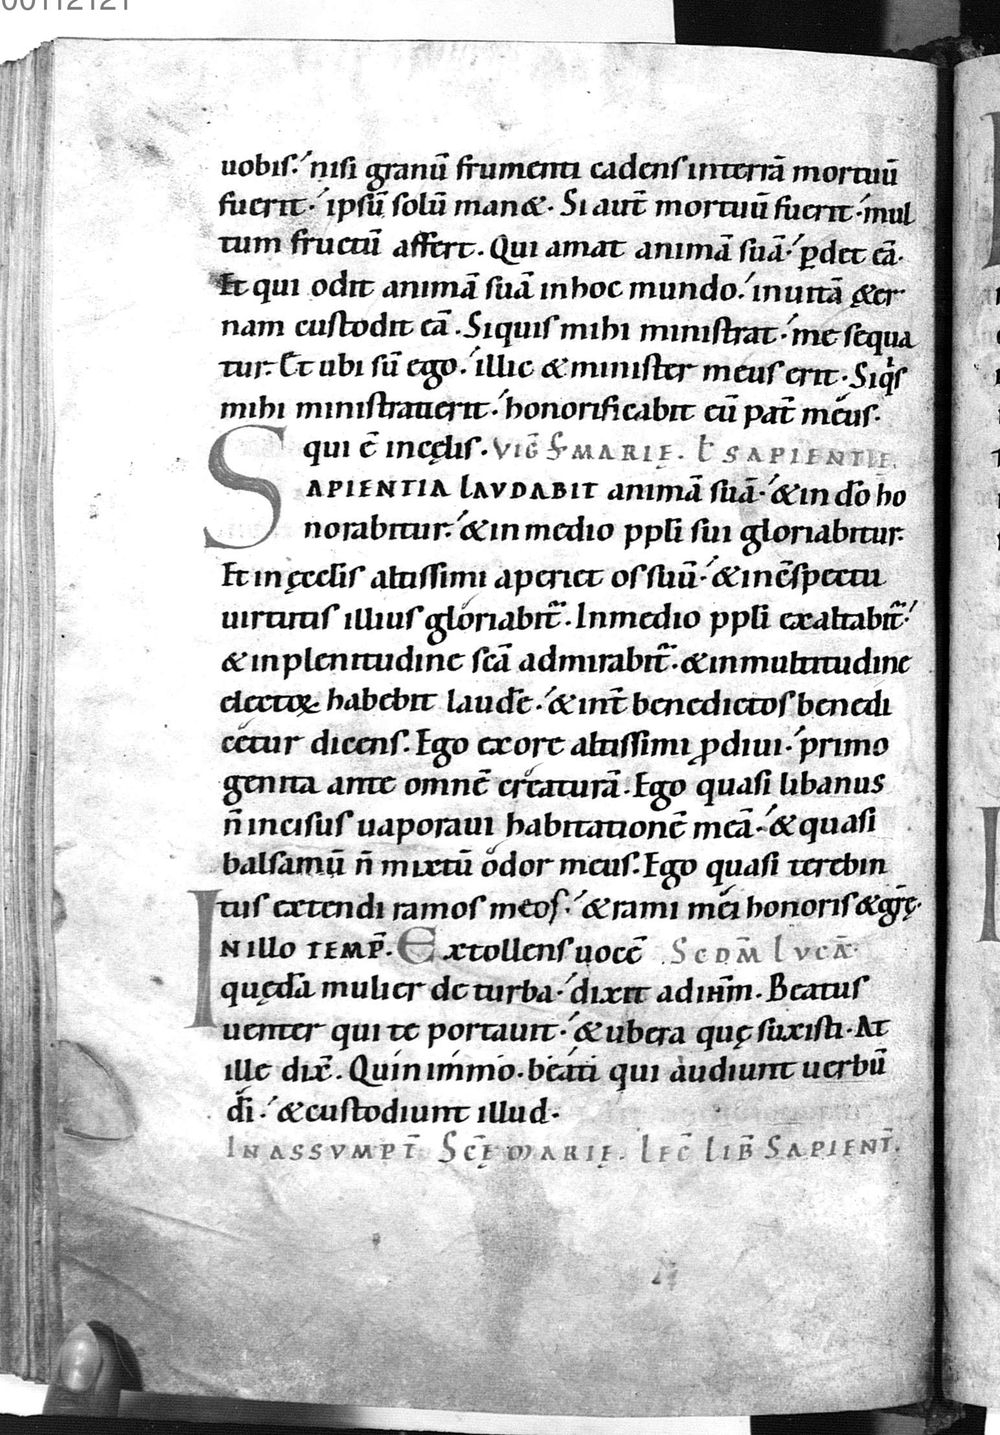 00112121
uobis. nisi granū frumenti cadens interrā mortuū
fuerit. ipsū solū man&. Si aut̄ mortuū fuerit. mul
tum fructū affert. Qui amat animā suā. ꝑdet eā.
Et qui odit animā suā inhoc mundo. inuitā &er
nam custodit eā. Siquis mihi ministrat. me sequa
tur. Et ubi sū ego. illic & minister meus erit. Siqͥs
mihi ministrauerit. honorificabit eū pat̄ meus.
qui ē incęlis. VIG̅ S̄ MARIĘ. L̄ SAPIENTIĘ.
SAPIENTIA LAVDABIT animā suā. & in d̄o ho
norabitur. & in medio ppli sui gloriabitur.
Et in ęcclis altissimi aperiet os suū. & in c̄spectu
uirtutis illius gloriabit̄. Inmedio ppli exaltabit̄.
& inplenitudine scā admirabit̄. & inmultitudine
electoꝝ habebit laudē. & int̄ benedictos benedi
cetur dicens. Ego exore altissimi ꝓdiui. primo
genita ante omnē creaturā. Ego quasi libanus
n̄ incisus uaporaui habitationē meā. & quasi
balsamū n̄ mixtū odor meus. Ego quasi terebin
tus extendi ramos meos. & rami mei honoris & gr̄ę.
IN ILLO TEMP̄. Extollens uocē SCDM̄ LVCĀ.
quędā mulier de turba. dixit ad ih̄m. Beatus
uenter qui te portauit. & ubera quę suxisti. At
ille dix̄. Quinimmo. beati qui audiunt uerbū
dī. & custodiunt illud.
IN ASSVMPT̄ SC̄Ę MARIĘ. LEC̄ LIB̄ SAPIENT̄.